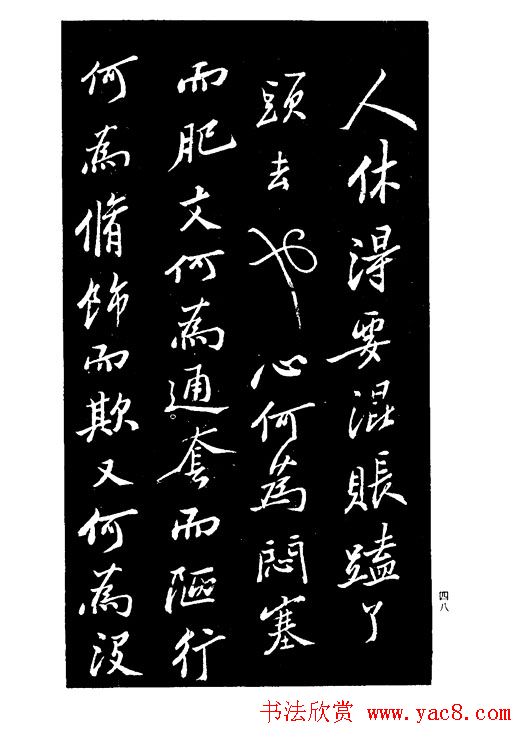 人休得要混賬磕了
頭去也心何為悶塞
而肥文何為通套而陋行
何為脩飾而欺又何為沒
四八
书法欣赏 www.yac8.com